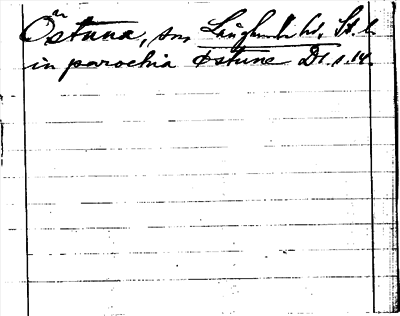 Östuna, sn, Långhundra hd, St. l.
in parochia Østune DS.1.14.